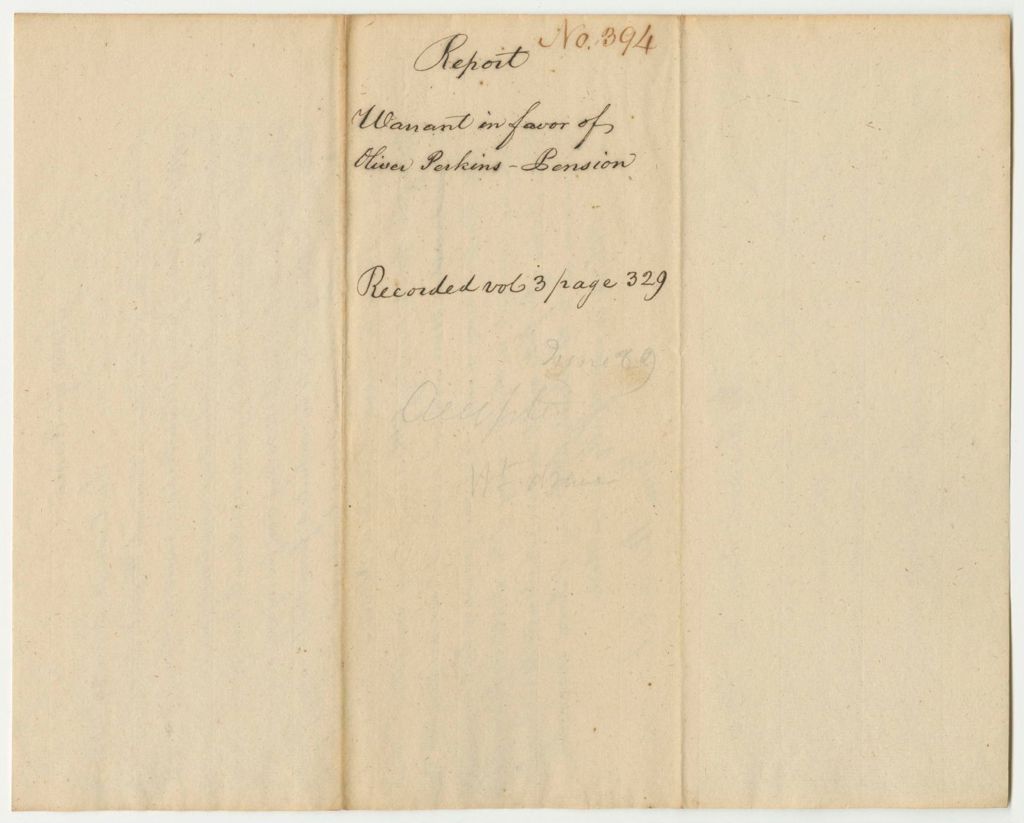 No. 394
Report
Warrant in favor of
Oliver Perkins - Pension
Recorded vol 3 page 329
June 29
Accepted